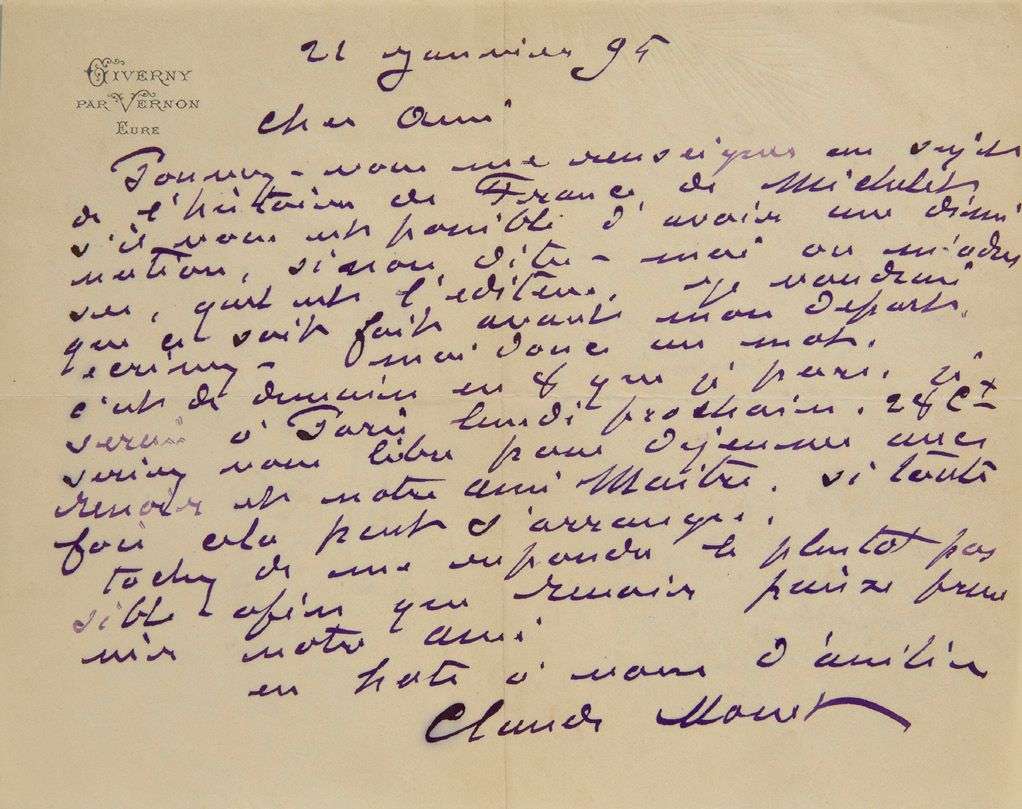 GIVERNY
PAR VERNON
EURE
21 janvier 95
cher ami
Pouvez-vous me renseigner au sujet
de l'histoire de France de Michelet
s'il vous est possible d'avoir une dimi
nution, sinon dites-moi ou m'adres
ser, quel est l'editeur. je voudrais
que ce soit fait avant mon depart.
ecrivez-moi donc un mot.
c'est de demain en 8 que je pars. je
serai à Paris lundi prochain. 28 Ct
seriez vous libre pour dejeuner avec
renoir et notre ami Maitre. si toute
fois cela peut s'arranger.
tachez de me repondre le plutot pos
sible afin que renoir puisse preve
nir notre ami
en hate à vous d'amitié
Claude Monet